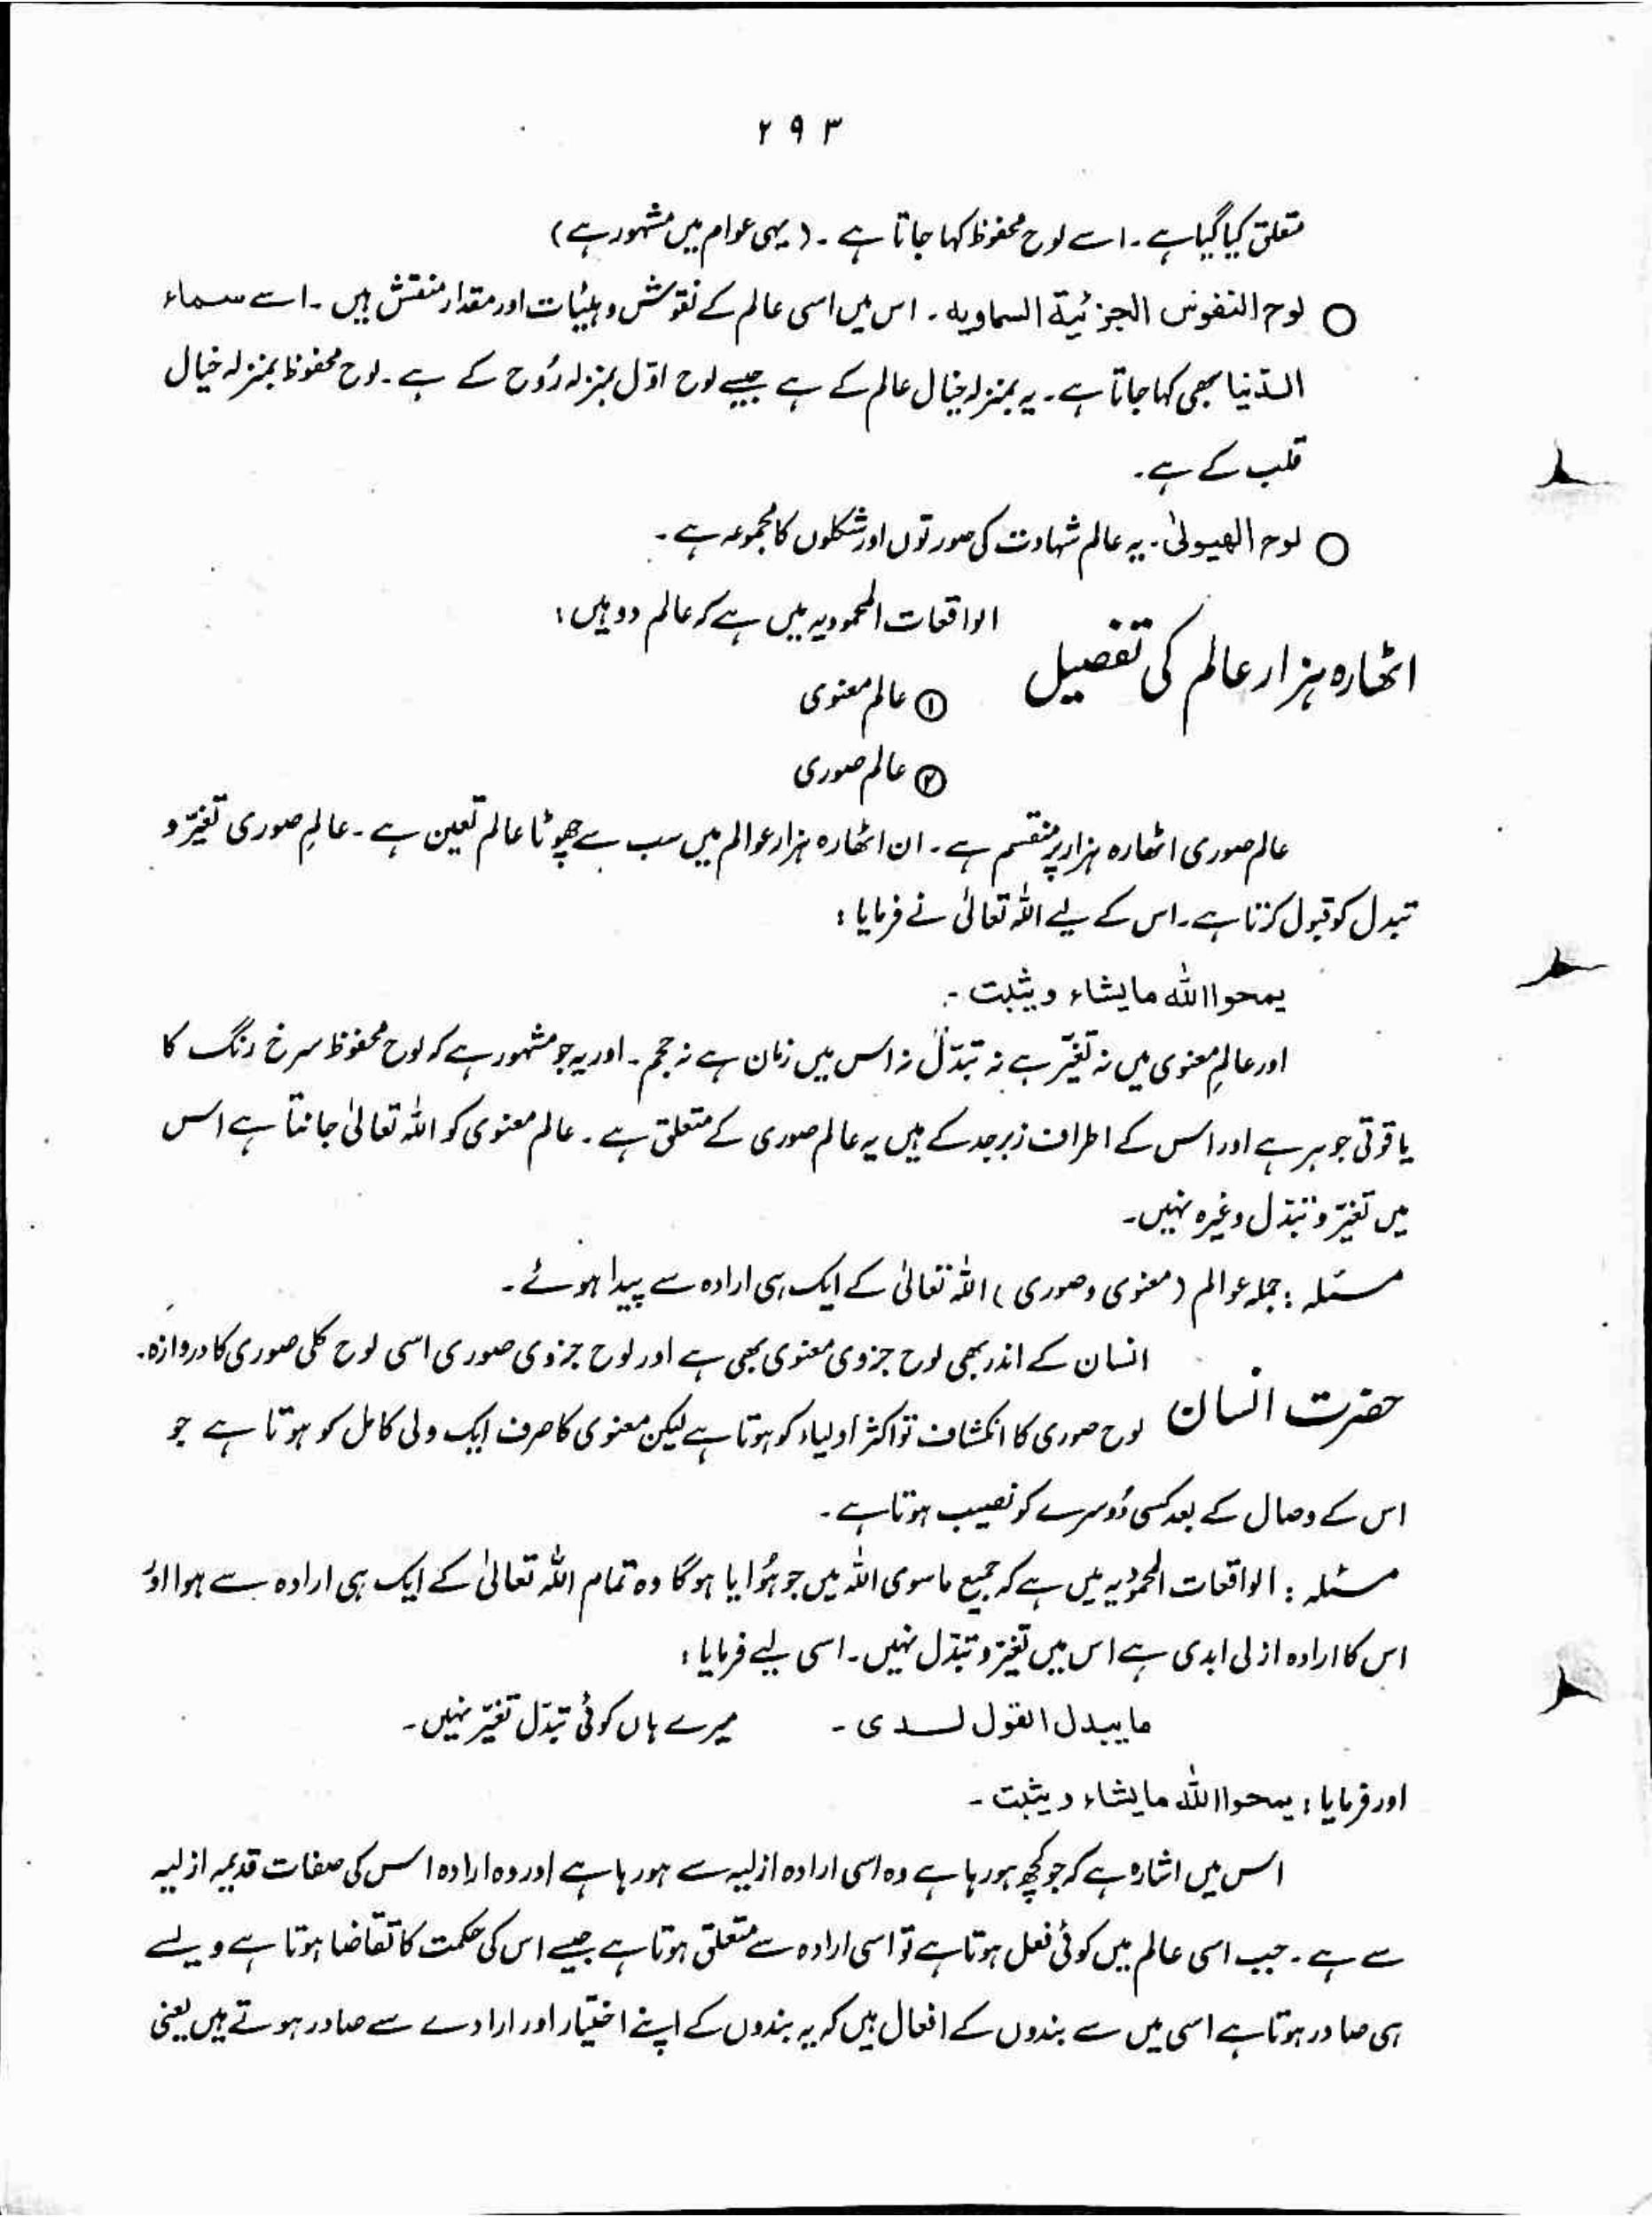 ۲۹۳
متعلق کیا گیا ہے۔ اسے لوح محفوظ کہا جاتا ہے۔ (یہی عوام میں مشہور ہے)
○ لوح النفوس الجزئیۃ السماویہ۔ اس میں اسی عالم کے نقوش و ہیئات اور مقدار منقش ہیں۔ اسے سماء
الدّنیا بھی کہا جاتا ہے۔ یہ بمنزلہ خیال عالم کے ہے جیسے لوح اوّل بمنزلہ رُوح کے ہے۔ لوح محفوظ بمنزلہ خیال
قلب کے ہے۔
○ لوح الھیولیٰ۔ یہ عالم شہادت کی صورتوں اور شکلوں کا مجموعہ ہے۔
اٹھارہ ہزار عالم کی تفصیل
الواقعات المحمودیہ میں ہے کہ عالم دو ہیں:
① عالم معنوی
② عالم صوری
عالم صوری اٹھارہ ہزار پر منقسم ہے۔ ان اٹھارہ ہزار عوالم میں سب سے چھوٹا عالم تعین ہے۔ عالمِ صوری تغیّر و
تبدل کو قبول کرتا ہے۔ اس کے لیے اللہ تعالیٰ نے فرمایا:
یمحوا اللہ ما یشاء و یثبت۔
اور عالمِ معنوی میں نہ تغیّر ہے نہ تبدّل نہ اس میں زمان ہے نہ حجم۔ اور یہ جو مشہور ہے کہ لوح محفوظ سرخ رنگ کا
یاقوتی جوہر ہے اور اس کے اطراف زبرجد کے ہیں یہ عالم صوری کے متعلق ہے۔ عالم معنوی کو اللہ تعالیٰ جانتا ہے اس
میں تغیّر و تبدّل وغیرہ نہیں۔
مسئلہ: جملہ عوالم (معنوی و صوری) اللہ تعالیٰ کے ایک ہی ارادہ سے پیدا ہوئے۔
حضرت انسان
انسان کے اندر بھی لوح جزوی معنوی بھی ہے اور لوح جزوی صوری اسی لوح کلی صوری کا دروازہ۔
لوح صوری کا انکشاف تو اکثر اولیاء کو ہوتا ہے لیکن معنوی کا صرف ایک ولی کامل کو ہوتا ہے جو
اس کے وصال کے بعد کسی دُوسرے کو نصیب ہوتا ہے۔
مسئلہ: الواقعات المحمودیہ میں ہے کہ جمیع ماسوی اللہ میں جو ہُوا یا ہوگا وہ تمام اللہ تعالیٰ کے ایک ہی ارادہ سے ہوا اور
اس کا ارادہ ازلی ابدی ہے اس میں تغیّر و تبدّل نہیں۔ اسی لیے فرمایا:
ما یبدل القول لدی۔ میرے ہاں کوئی تبدّل تغیّر نہیں۔
اور فرمایا: یمحوا اللہ ما یشاء و یثبت۔
اس میں اشارہ ہے کہ جو کچھ ہو رہا ہے وہ اسی ارادہ ازلیہ سے ہو رہا ہے اور وہ ارادہ اس کی صفات قدیمہ ازلیہ
سے ہے۔ جب اسی عالم میں کوئی فعل ہوتا ہے تو اسی ارادہ سے متعلق ہوتا ہے جیسے اس کی حکمت کا تقاضا ہوتا ہے ویسے
ہی صادر ہوتا ہے اسی میں سے بندوں کے افعال ہیں کہ یہ بندوں کے اپنے اختیار اور ارادے سے صادر ہوتے ہیں یعنی